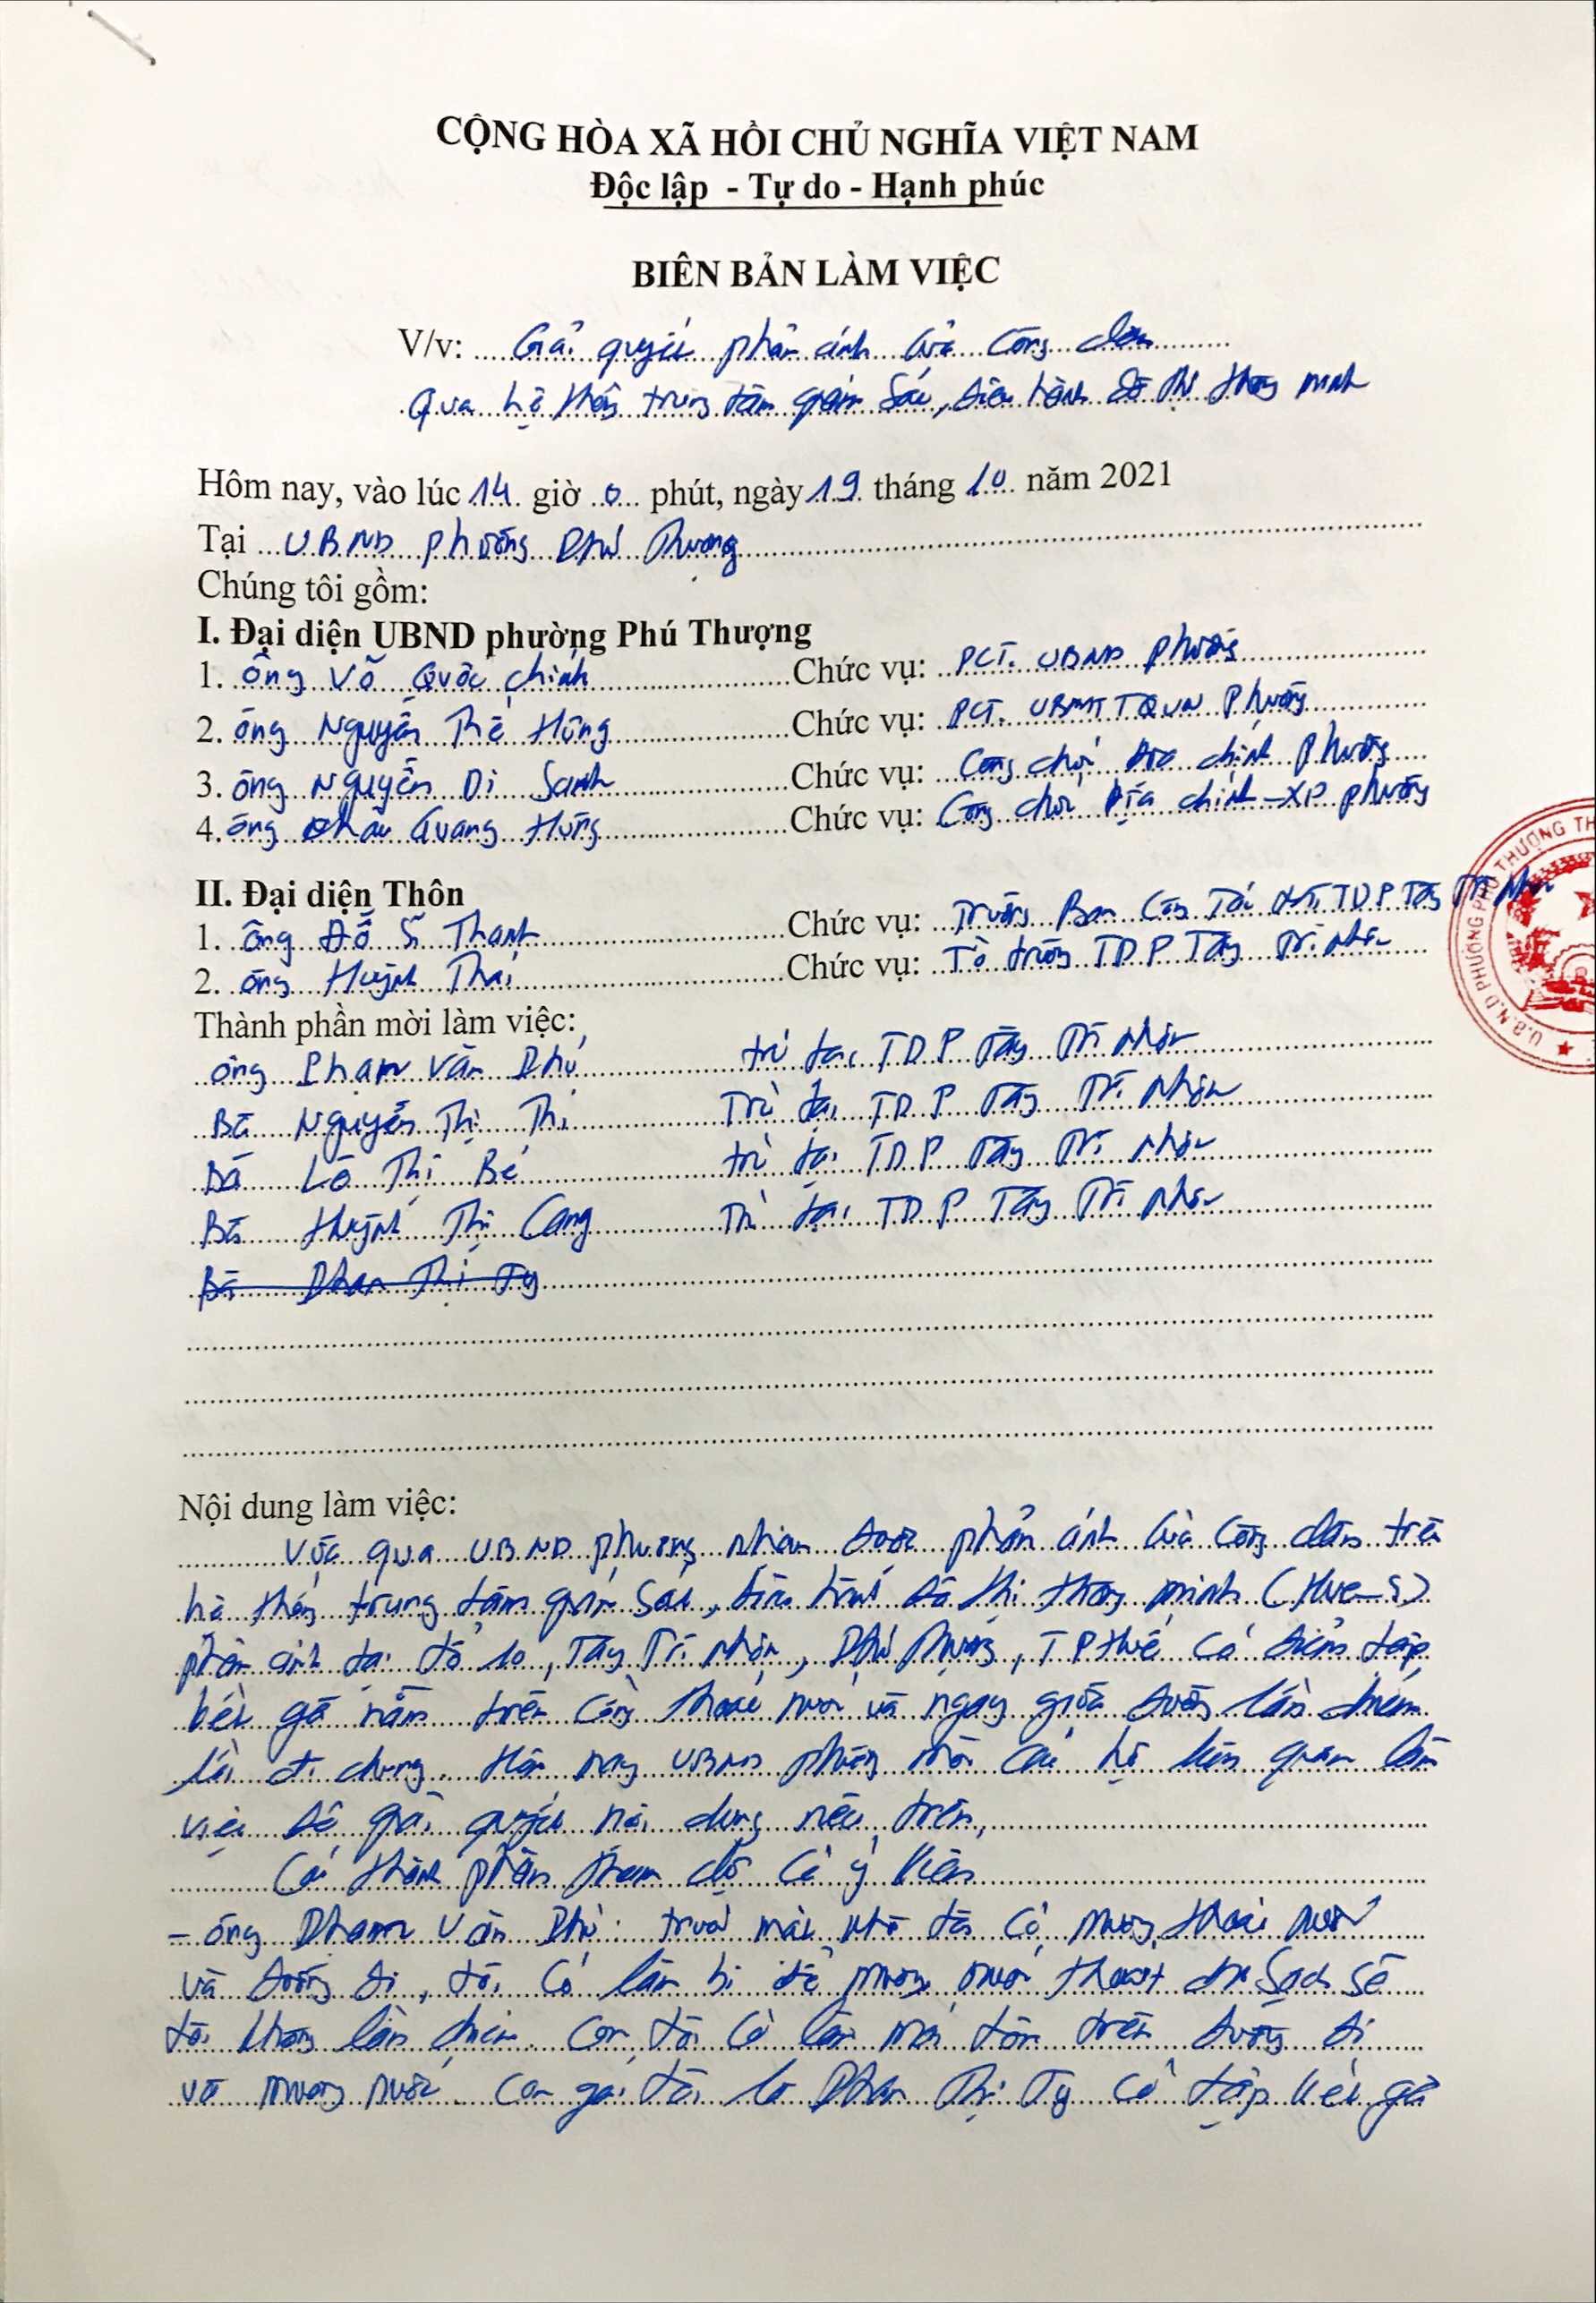 CỘNG HÒA XÃ HỒI CHỦ NGHĨA VIỆT NAM
Độc lập - Tự do - Hạnh phúc
BIÊN BẢN LÀM VIỆC
V/v: Giải quyết phản ánh của công dân
Qua hệ thống trung tâm giám sát, điều hành đô thị thông minh
Hôm nay, vào lúc 14 giờ 0 phút, ngày 19 tháng 10 năm 2021
Tại UBND phường Phú Thượng
Chúng tôi gồm:
I. Đại diện UBND phường Phú Thượng
1. Ông Võ Quốc Chính Chức vụ: PCT. UBND phường
2. Ông Nguyễn Thế Hùng Chức vụ: PCT. UBMTTQVN Phường
3. Ông Nguyễn Di Sanh Chức vụ: Công chức địa chính phường
4. Ông Châu Quang Hưng Chức vụ: Công chức Địa chính - XD phường
II. Đại diện Thôn
1. Ông Đỗ Sĩ Thanh Chức vụ: Trưởng Ban Công Tác MT TDP Tây Trì Nhơn
2. Ông Huỳnh Thái Chức vụ: Tổ trưởng TDP Tây Trì Nhơn
Thành phần mời làm việc:
Ông Phạm Văn Phú trú tại TDP Tây Trì Nhơn
Bà Nguyễn Thị Thi Trú tại TDP Tây Trì Nhơn
Bà Lê Thị Bé trú tại TDP Tây Trì Nhơn
Bà Huỳnh Thị Cang Trú tại TDP Tây Trì Nhơn
Bà Phan Thị Ty
Nội dung làm việc:
Vừa qua UBND phường nhận được phản ánh của công dân trên
hệ thống trung tâm giám sát, điều hành đô thị thông minh (Hue-S)
phản ánh tại tổ 10, Tây Trì Nhơn, Phú Thượng, TP Huế có điểm tập
kết gỗ nằm trên cống thoát nước và ngay giữa đường lấn chiếm
lối đi chung. Hôm nay UBND phường mời các hộ liên quan làm
việc để giải quyết nội dung nêu trên.
Các thành phần tham dự có ý kiến
- Ông Phạm Văn Phú: trước mặt nhà tôi có mương thoát nước
và đường đi, tôi có làm bi để mương nước thoát sạch sẽ
tôi không lấn chiếm. Con tôi có làm mái tôn trên đường đi
và mương nước. Con gái tôi là Phan Thị Ty có tập kết gỗ
U.B.N.D PHƯỜNG PHÚ THƯỢNG